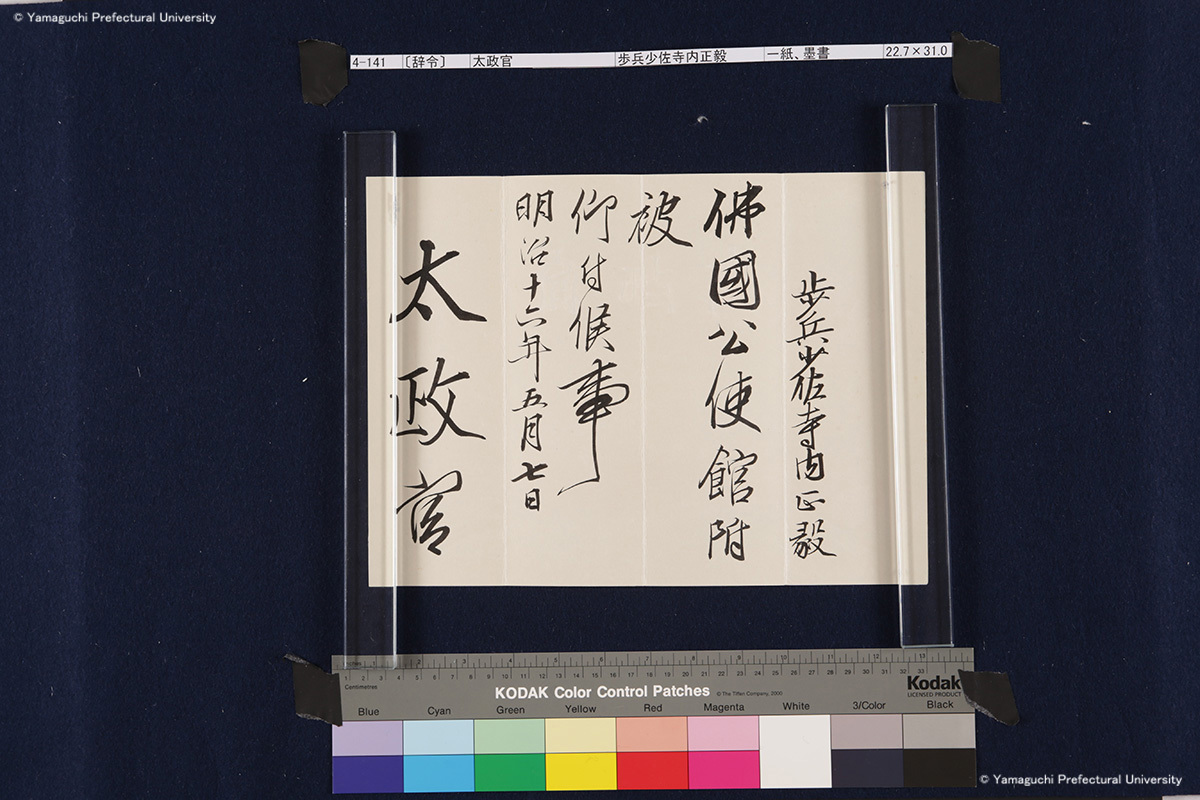 © Yamaguchi Prefectural University
4-141 〔辞令〕 太政官 歩兵少佐寺内正毅 一紙、墨書 22.7×31.0
歩兵少佐寺内正毅
佛國公使館附
被
仰付候事
明治十六年五月七日
太政官
KODAK Color Control Patches © The Tiffen Company, 2000
Kodak
LICENSED PRODUCT
Centimetres
Blue Cyan Green Yellow Red Magenta White 3/Color Black
© Yamaguchi Prefectural University